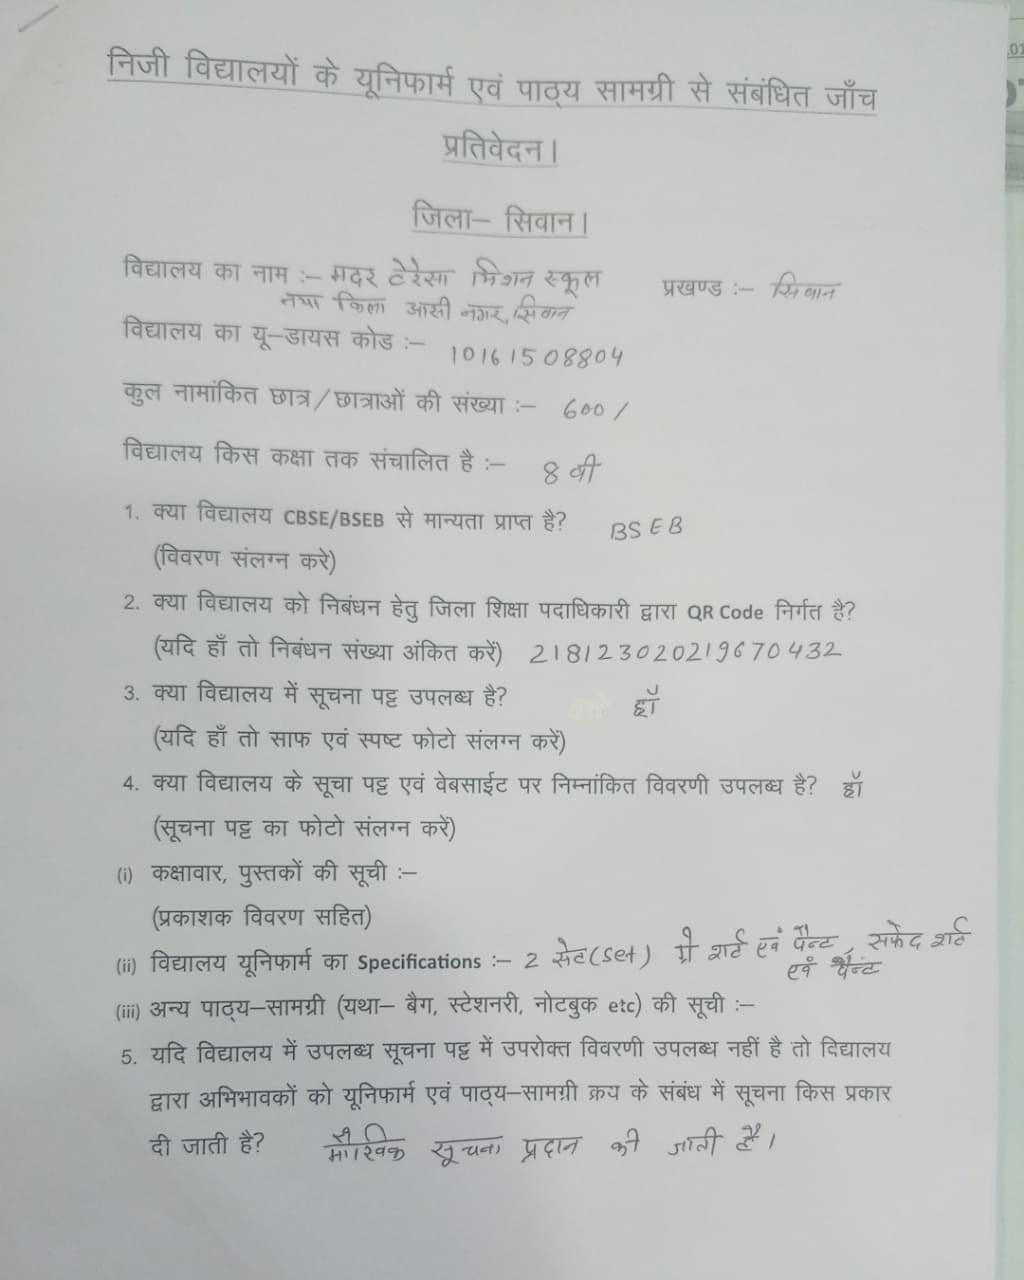 निजी विद्यालयों के यूनिफार्म एवं पाठ्य सामग्री से संबंधित जाँच
प्रतिवेदन।
जिला– सिवान।
विद्यालय का नाम :– मदर टेरेसा मिशन स्कूल प्रखण्ड :– सिवान
नया किला आसी नगर, सिवान
विद्यालय का यू–डायस कोड :– 10161508804
कुल नामांकित छात्र/छात्राओं की संख्या :– 600/
विद्यालय किस कक्षा तक संचालित है :– 8 वी
1. क्या विद्यालय CBSE/BSEB से मान्यता प्राप्त है? BSEB
(विवरण संलग्न करें)
2. क्या विद्यालय को निबंधन हेतु जिला शिक्षा पदाधिकारी द्वारा QR Code निर्गत है?
(यदि हाँ तो निबंधन संख्या अंकित करें) 218123020219670432
3. क्या विद्यालय में सूचना पट्ट उपलब्ध है? हाँ
(यदि हाँ तो साफ एवं स्पष्ट फोटो संलग्न करें)
4. क्या विद्यालय के सूचा पट्ट एवं वेबसाईट पर निम्नांकित विवरणी उपलब्ध है? हाँ
(सूचना पट्ट का फोटो संलग्न करें)
(i) कक्षावार, पुस्तकों की सूची :–
(प्रकाशक विवरण सहित)
(ii) विद्यालय यूनिफार्म का Specifications :– 2 सेट(set) ग्रे शर्ट एवं पैन्ट, सफेद शर्ट
एवं पैन्ट
(iii) अन्य पाठ्य–सामग्री (यथा– बैग, स्टेशनरी, नोटबुक etc) की सूची :–
5. यदि विद्यालय में उपलब्ध सूचना पट्ट में उपरोक्त विवरणी उपलब्ध नहीं है तो विद्यालय
द्वारा अभिभावकों को यूनिफार्म एवं पाठ्य–सामग्री क्रय के संबंध में सूचना किस प्रकार
दी जाती है? मौखिक सूचना प्रदान की जाती है।